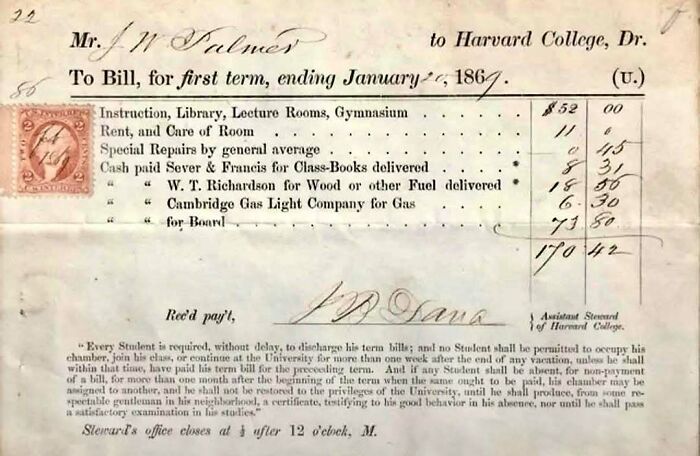 22
Mr. J W Palmer to Harvard College, Dr.
To Bill, for first term, ending January 20, 1869. (U.)
86
Instruction, Library, Lecture Rooms, Gymnasium . . . . . . . $52 00
Rent, and Care of Room . . . . . . . . . . . . . . 11 0
Special Repairs by general average . . . . . . . . . . 0 45
Cash paid Sever & Francis for Class-Books delivered . . . . * 8 31
“ “ W. T. Richardson for Wood or other Fuel delivered * 18 56
“ “ Cambridge Gas Light Company for Gas . . . . 6 30
“ “ for Board . . . . . . . . . . . . . . . 73 80
170 42
Rec'd pay't, Assistant Steward
of Harvard College.
“Every Student is required, without delay, to discharge his term bills; and no Student shall be permitted to occupy his
chamber, join his class, or continue at the University for more than one week after the end of any vacation, unless he shall
within that time, have paid his term bill for the preceeding term. And if any Student shall be absent, for non-payment
of a bill, for more than one month after the beginning of the term when the same ought to be paid, his chamber may be
assigned to another, and he shall not be restored to the privileges of the University, until he shall produce, from some re-
spectable gentleman in his neighborhood, a certificate, testifying to his good behavior in his absence, nor until he shall pass
a satisfactory examination in his studies.”
Steward's office closes at ½ after 12 o'clock, M.